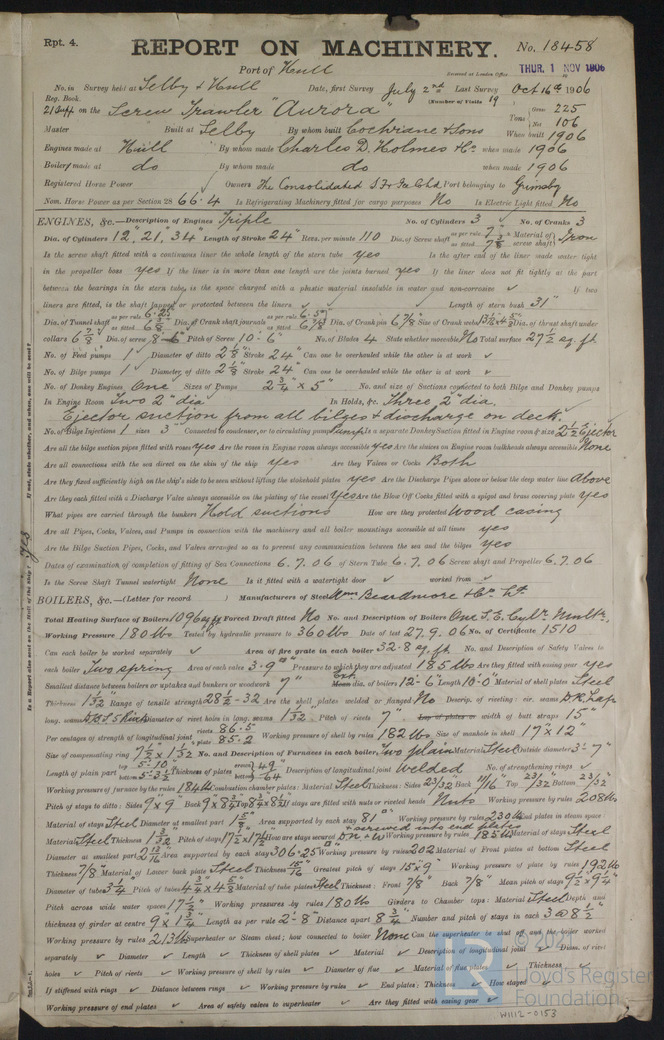 Rpt. 4.
REPORT ON MACHINERY. No. 18458
Port of Hull
Received at London Office THUR. 1 NOV 1906
No. in Survey held at Selby & Hull Date, first Survey July 2nd Last Survey Oct 16th 1906
Reg. Book. (Number of Visits 19
21 Supp on the Screw Trawler "Aurora" Tons Gross 225 Net 106
Master Built at Selby By whom built Cochrane & Sons When built 1906
Engines made at Hull By whom made Charles D. Holmes & Co when made 1906
Boiler made at do By whom made do when made 1906
Registered Horse Power Owners The Consolidated S. F. Ice Co Ltd Port belonging to Grimsby
Nom. Horse Power as per Section 28 66.4 Is Refrigerating Machinery fitted for cargo purposes No Is Electric Light fitted No
ENGINES, &c.—Description of Engines Triple No. of Cylinders 3 No. of Cranks 3
Dia. of Cylinders 12", 21", 34" Length of Stroke 24" Revs. per minute 110 Dia. of Screw shaft as per rule as fitted 7 1/8 Material of screw shaft Iron
Is the screw shaft fitted with a continuous liner the whole length of the stern tube yes Is the after end of the liner made water tight
in the propeller boss yes If the liner is in more than one length are the joints burned yes If the liner does not fit tightly at the part
between the bearings in the stern tube, is the space charged with a plastic material insoluble in water and non-corrosive ✓ If two
liners are fitted, is the shaft lapped or protected between the liners ✓ Length of stern bush 31"
Dia. of Tunnel shaft as per rule 6.25 as fitted 6 3/8 Dia. of Crank shaft journals as per rule 6.57 as fitted 6 7/8 Dia. of Crank pin 6 7/8" Size of Crank webs 13 1/2 x 4 5/8 Dia. of thrust shaft under
collars 6 7/8 Dia. of screw 8-6" Pitch of Screw 10-6" No. of Blades 4 State whether moveable No Total surface 27 1/2 sq. ft
No. of Feed pumps 1 Diameter of ditto 2 1/8" Stroke 24" Can one be overhauled while the other is at work ✓
No. of Bilge pumps 1 Diameter of ditto 2 1/8" Stroke 24" Can one be overhauled while the other is at work ✓
No. of Donkey Engines One Sizes of Pumps 2 3/4 x 5" No. and size of Suctions connected to both Bilge and Donkey pumps
In Engine Room Two 2" dia In Holds, &c. Three 2" dia.
Ejector suction from all bilges & discharge on deck.
No. of Bilge Injections 1 sizes 3" Connected to condenser, or to circulating pump Pump Is a separate Donkey Suction fitted in Engine room & size 2 1/2 Ejector
Are all the bilge suction pipes fitted with roses yes Are the roses in Engine room always accessible yes Are the sluices on Engine room bulkheads always accessible None
Are all connections with the sea direct on the skin of the ship yes Are they Valves or Cocks Both
Are they fixed sufficiently high on the ship's side to be seen without lifting the stokehold plates yes Are the Discharge Pipes above or below the deep water line Above
Are they each fitted with a Discharge Valve always accessible on the plating of the vessel Yes Are the Blow Off Cocks fitted with a spigot and brass covering plate yes
What pipes are carried through the bunkers Hold suctions How are they protected Wood casing
Are all Pipes, Cocks, Valves, and Pumps in connection with the machinery and all boiler mountings accessible at all times yes
Are the Bilge Suction Pipes, Cocks, and Valves arranged so as to prevent any communication between the sea and the bilges yes
Dates of examination of completion of fitting of Sea Connections 6.7.06 of Stern Tube 6.7.06 Screw shaft and Propeller 6.7.06
Is the Screw Shaft Tunnel watertight None Is it fitted with a watertight door ✓ worked from ✓
BOILERS, &c.—(Letter for record ) Manufacturers of Steel Wm. Beardmore & Co. Lt.
Total Heating Surface of Boilers 1096 sq ft Forced Draft fitted No No. and Description of Boilers One S. E. Cylr. Multr.
Working Pressure 180 lbs Tested by hydraulic pressure to 360 lbs Date of test 27.9.06 No. of Certificate 1510
Can each boiler be worked separately ✓ Area of fire grate in each boiler 32.8 sq. ft. No. and Description of Safety Valves to
each boiler Two spring Area of each valve 3.9" Pressure to which they are adjusted 185 lbs Are they fitted with easing gear yes
Smallest distance between boilers or uptakes and bunkers or woodwork 7" Ext. dia. of boilers 12-6" Length 10-0" Material of shell plates Steel
Thickness 1 1/32 Range of tensile strength 28 1/2-32 Are the shell plates welded or flanged No Descrip. of riveting: cir. seams D.R. Lap
long. seams Diameter of rivet holes in long. seams 1 1/32 Pitch of rivets 7" Lap of plates or width of butt straps 15"
Per centages of strength of longitudinal joint rivets 86.5 plate 85.2 Working pressure of shell by rules 182 lbs Size of manhole in shell 17 x 12"
Size of compensating ring 7 1/2 x 1 1/32 No. and Description of Furnaces in each boiler Two plain Material Steel Outside diameter 3-7"
Length of plain part top 5-10" bottom Thickness of plates crown 49/64 bottom Description of longitudinal joint Welded No. of strengthening rings ✓
Working pressure of furnace by the rules 184 lbs Combustion chamber plates: Material Steel Thickness: Sides 23/32 Back 11/16" Top 23/32 Bottom 23/32
Pitch of stays to ditto: Sides 9 x 9 Back 9 x 8 3/4 Top 8 3/4 x 8 1/2 If stays are fitted with nuts or riveted heads Nuts Working pressure by rules 208 lbs
Material of stays Steel Diameter at smallest part 1 5/8" Area supported by each stay 81" Working pressure by rules 230 lbs End plates in steam space:
Material Steel Thickness 1 3/32 Pitch of stays 17 1/2 x 17 1/2 How are stays secured D.n. & W screwed into end plates Working pressure by rules 185 lbs Material of stays Steel
Diameter at smallest part Area supported by each stay 306.25 Working pressure by rules 202 Material of Front plates at bottom Steel
Thickness 7/8" Material of Lower back plate Steel Thickness 15/16 Greatest pitch of stays 15 x 9" Working pressure of plate by rules 192 lbs
Diameter of tubes 3 1/4 Pitch of tubes 4 3/4 x 4 5/8 Material of tube plates Steel Thickness: Front 7/8" Back 7/8" Mean pitch of stays 9 1/2 x 9 1/4"
Pitch across wide water spaces 17 1/2" Working pressures by rules 180 lbs Girders to Chamber tops: Material Steel Depth and
thickness of girder at centre 9 x 1 3/4" Length as per rule 2-8" Distance apart 8 3/4" Number and pitch of stays in each 3 @ 8 1/2"
Working pressure by rules 213 lbs Superheater or Steam chest; how connected to boiler None Can the superheater be shut off and the boiler worked
separately ✓ Diameter ✓ Length ✓ Thickness of shell plates ✓ Material ✓ Description of longitudinal joint ✓ Diam. of rivet
holes ✓ Pitch of rivets ✓ Working pressure of shell by rules ✓ Diameter of flue ✓ Material of flue plates ✓ Thickness ✓
If stiffened with rings ✓ Distance between rings ✓ Working pressure by rules ✓ End plates: Thickness ✓ How stayed ✓
Working pressure of end plates ✓ Area of safety valves to superheater ✓ Are they fitted with easing gear ✓
© 2021
Lloyd's Register
Foundation
W1112-0153